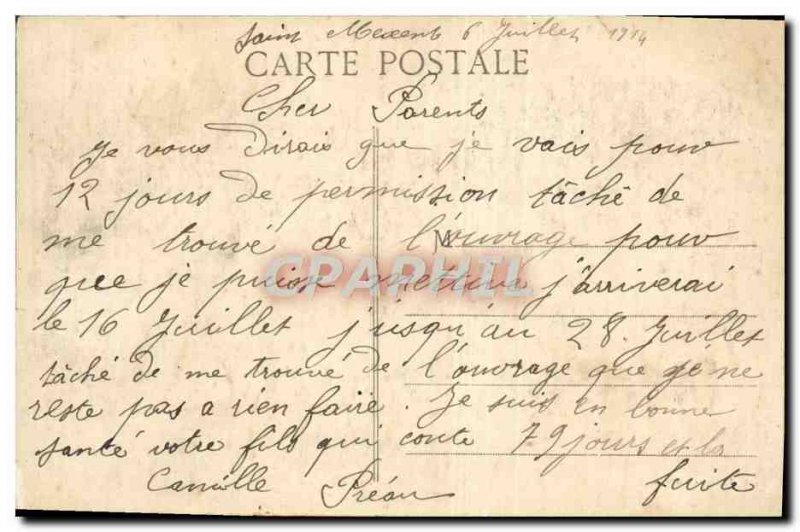 Saint Mexent 6 Juillet 1914
CARTE POSTALE
Cher Parents
je vous Dirais que je vais pour
12 jours de permission tâché de
me trouvé de l'ouvrage pour
que je puisse mettre j'arriverai
le 16 Juillet jusqu'au 28. Juillet
tâché de me trouvé de l'ouvrage que je ne
reste pas a rien faire. Je suis en bonne
santé votre fils qui conte 79 jours et la
Camille Préau fuite
CPAPHIL